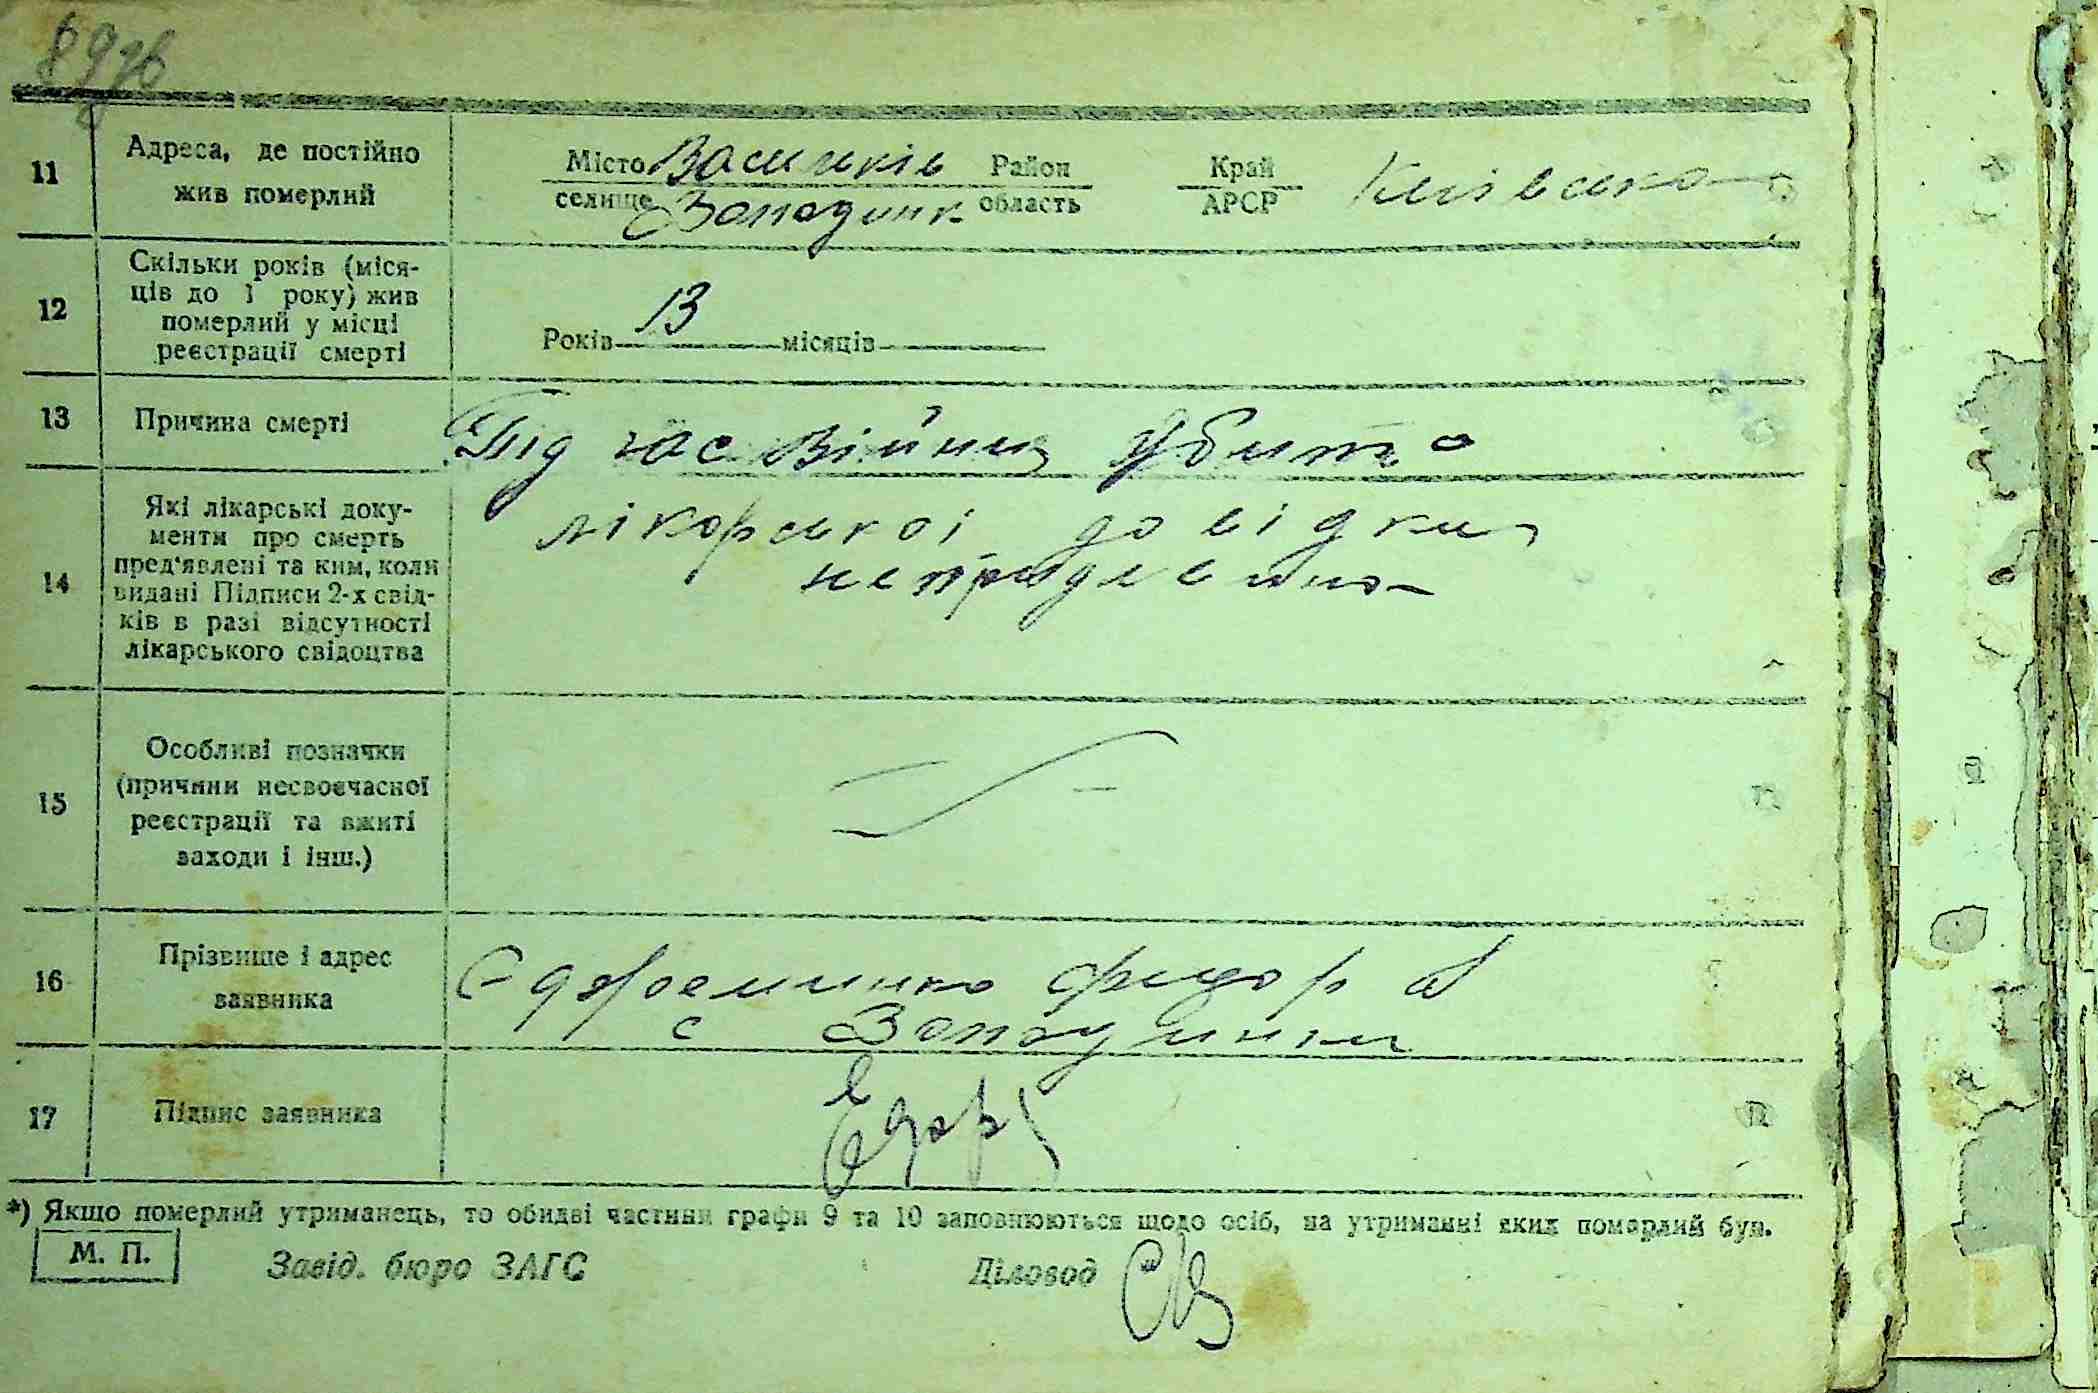 11 Адреса, де постійно жив померлий
Місто Васильків Район Край Київська
селище Западинк область АРСР
12 Скільки років (міся-
ців до 1 року) жив
померлий у місці
реєстрації смерті
Років 13 місяців
13 Причина смерті Під час війни убито
14 Які лікарські доку-
менти про смерть
пред'явлені та ким, коли
видані Підписи 2-х свід-
ків в разі відсутності
лікарського свідоцтва
лікорської довідки
15 Особливі позначки
(причини несвоєчасної
реєстрації та вжиті
заходи і інш.)
16 Прізвище і адрес
заявника
с Западинки
17 Підпис заявника
*) Якщо померлий утриманець, то обидві частини графи 9 та 10 заповнюються щодо осіб, на утриманні яких померлий був.
М. П. Завід. бюро ЗАГС Діловод